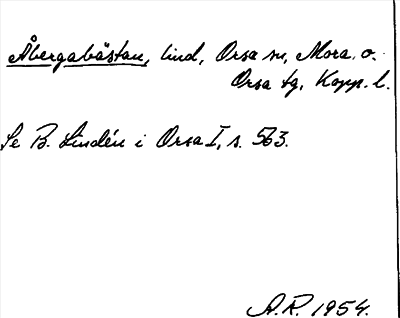 Åbergabästan, lind, Orsa sn, Mora o.
Orsa tg, Kopp. l.
Se B. Lindén i Orsa I, s. 563.
A.R. 1954.